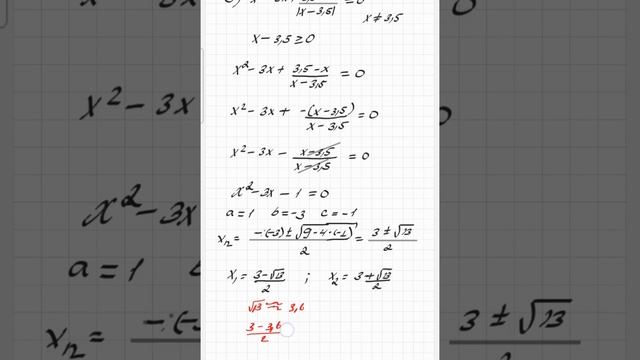 |x-3,5|
x≠3,5
x-3,5≥0
x²-3x+(3,5-x)/(x-3,5)=0
x²-3x+(-(x-3,5))/(x-3,5)=0
x²-3x-(x-3,5)/(x-3,5)=0
x²-3x-1=0
a=1 b=-3 c=-1
x₁₂=(-(-3)±√(9-4·(-1)))/2=(3±√13)/2
x₁=(3-√13)/2 ; x₂=(3+√13)/2
√13≈3,6
(3-3,6)/2